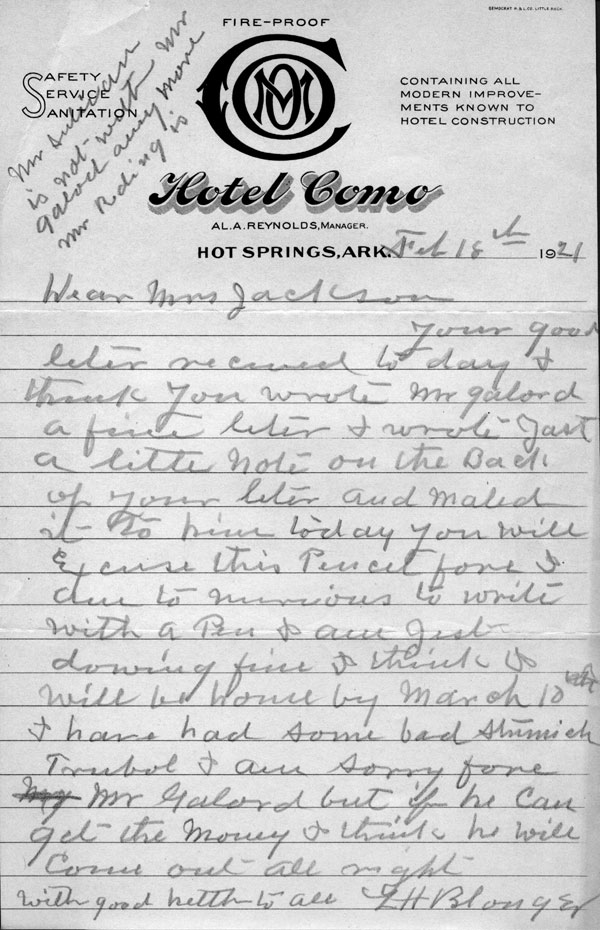 DEMOCRAT P. & L. CO. LITTLE ROCK.
FIRE-PROOF
COMO
SAFETY
SERVICE
SANITATION
CONTAINING ALL
MODERN IMPROVE-
MENTS KNOWN TO
HOTEL CONSTRUCTION
Mr Sullivan
is not with Mr
Galord any more
Mr Riding is
Hotel Como
AL. A. REYNOLDS, MANAGER.
HOT SPRINGS, ARK. Feb 18th 1921
Dear Mrs Jackson
Your good
leter receved to day I
think you wrote Mr galord
a fine leter I wrote Just
a little Note on the Back
of your leter and Maled
it to him to day you will
Excuse this Pencel fore I
am to nurvious to write
with a Pen I am Just
dowing fine I think I
will be home by March 10th
I have had some bad Stumich
Trubol I am sorry fore
My Mr Galord but if he Can
get the Money I think he will
Come out all right
with good helth to all LH Blonger